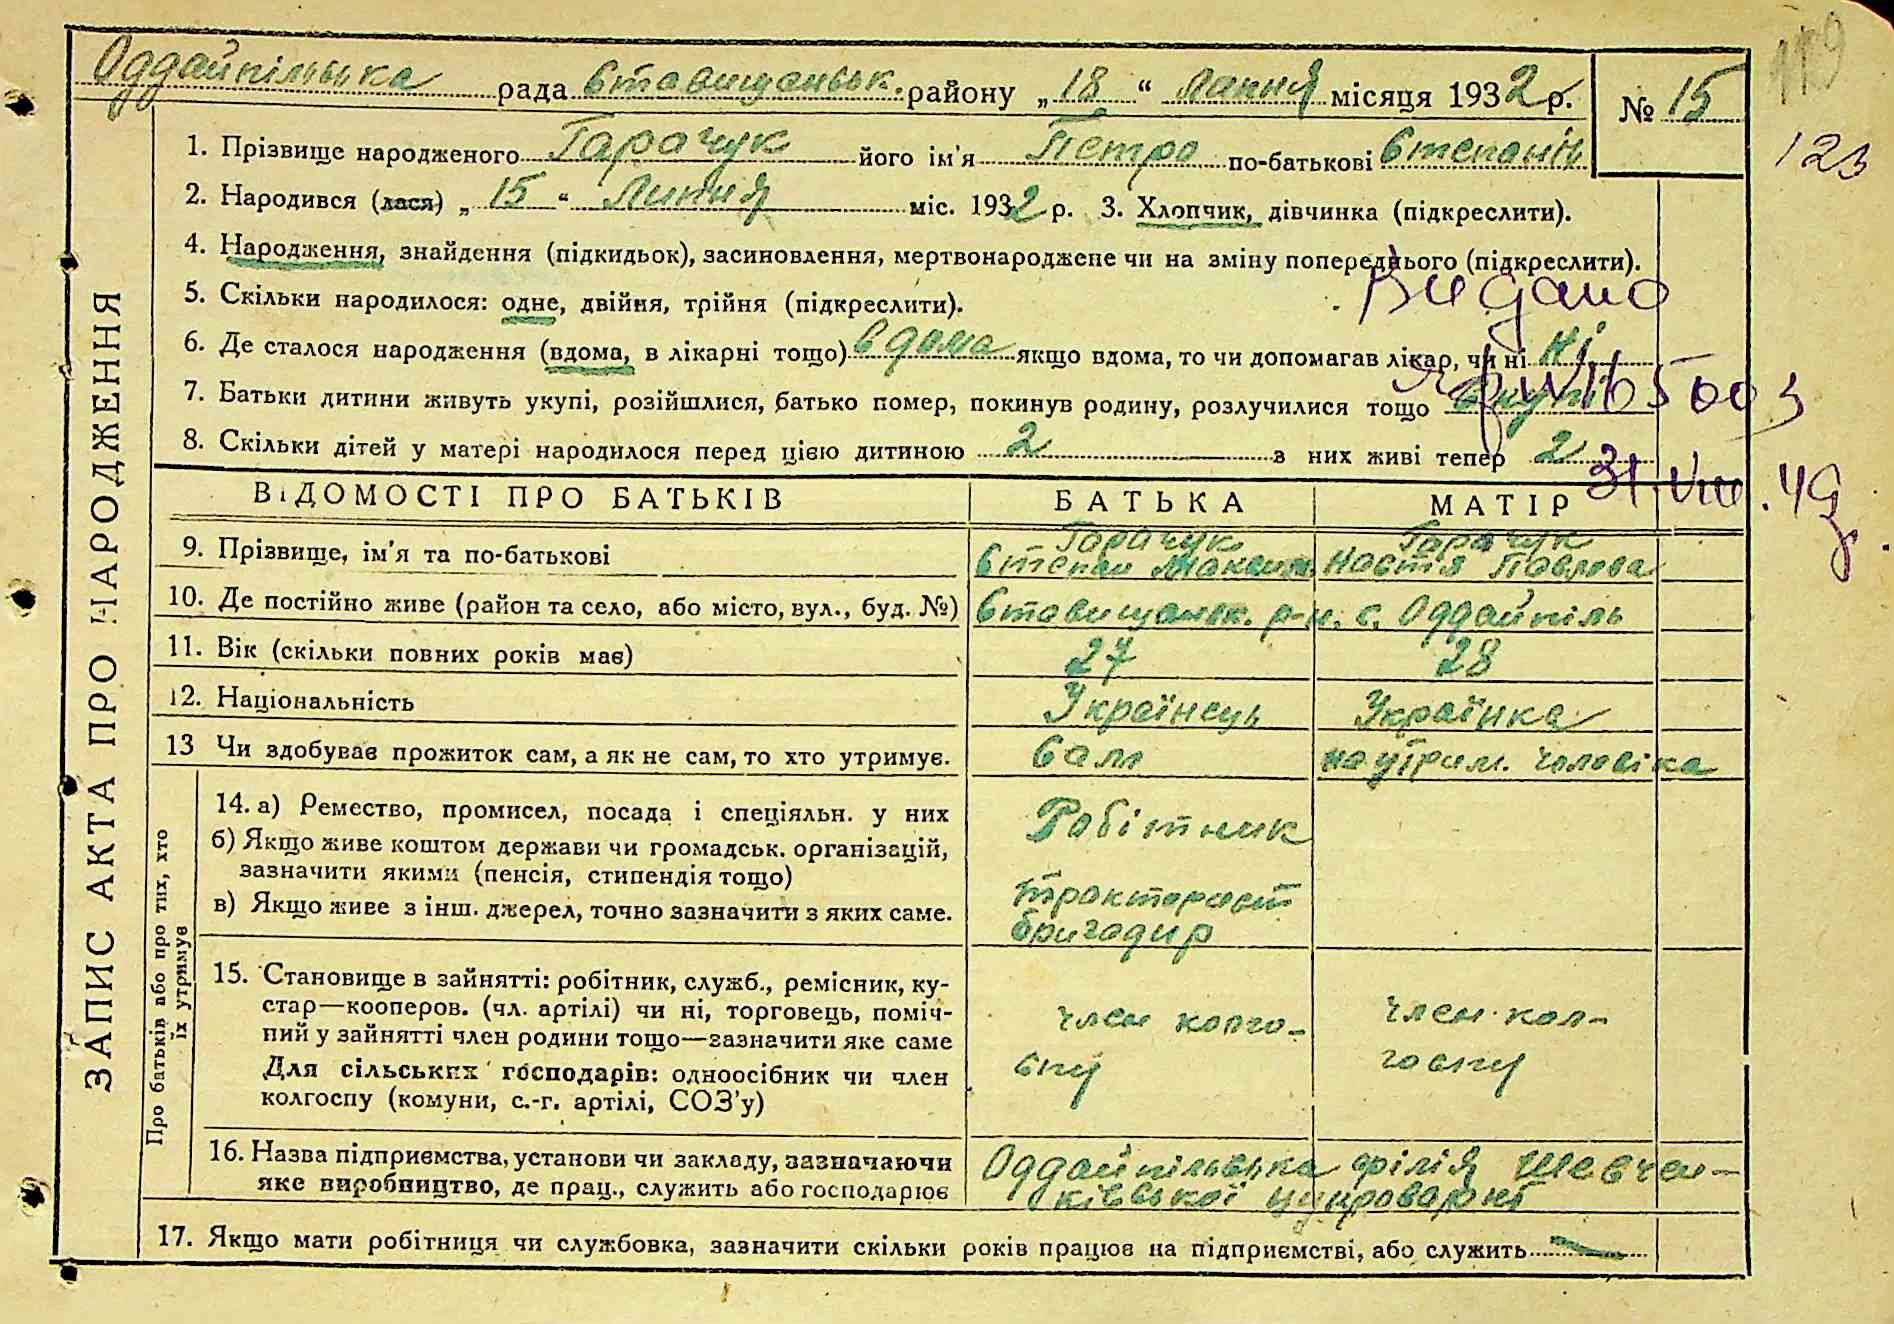 Оддайпільська рада Ставищанськ. району „18“ липня місяця 1932 р. № 15
119
123
1. Прізвище народженого Гарачук його ім'я Петро по-батькові Степанів
2. Народився (лася) „15“ Липня міс. 1932 р. 3. Хлопчик, дівчинка (підкреслити).
4. Народження, знайдення (підкидьок), засиновлення, мертвонароджене чи на зміну попереднього (підкреслити).
5. Скільки народилося: одне, двійня, трійня (підкреслити).
Видано
6. Де сталося народження (вдома, в лікарні тощо) вдома якщо вдома, то чи допомагав лікар, чи ні ні
7. Батьки дитини живуть укупі, розійшлися, батько помер, покинув родину, розлучилися тощо вкупі
8. Скільки дітей у матері народилося перед цією дитиною 2 з них живі тепер 2
31.VIII.49 г.
ВІДОМОСТІ ПРО БАТЬКІВ БАТЬКА МАТІР
9. Прізвище, ім'я та по-батькові Гарачук Степан Максим. Гарачук Настія Павлова
10. Де постійно живе (район та село, або місто, вул., буд. №) Ставищанськ. р-н. с. Оддайпіль
11. Вік (скільки повних років має) 27 28
12. Національність Українець Українка
13 Чи здобував прожиток сам, а як не сам, то хто утримує. Сам на утрим. чоловіка
14. а) Ремество, промисел, посада і спеціяльн. у них Робітник
б) Якщо живе коштом держави чи громадськ. організацій,
зазначити якими (пенсія, стипендія тощо)
в) Якщо живе з інш. джерел, точно зазначити з яких саме. тракторист
бригадир
15. Становище в зайнятті: робітник, служб., ремісник, ку-
стар—кооперов. (чл. артілі) чи ні, торговець, поміч- член колго- член кол-
ний у зайнятті член родини тощо—зазначити яке саме
Для сільських господарів: одноосібник чи член спу госпу
колгоспу (комуни, с.-г. артілі, СОЗ'у)
16. Назва підприємства, установи чи закладу, зазначаючи Оддайпільська філія Шевчен-
яке виробництво, де прац., служить або господарює ківської цукроварні
17. Якщо мати робітниця чи службовка, зазначити скільки років працює на підприємстві, або служить
ЗАПИС АКТА ПРО НАРОДЖЕННЯ
Про батьків або про тих, хто
їх утримує